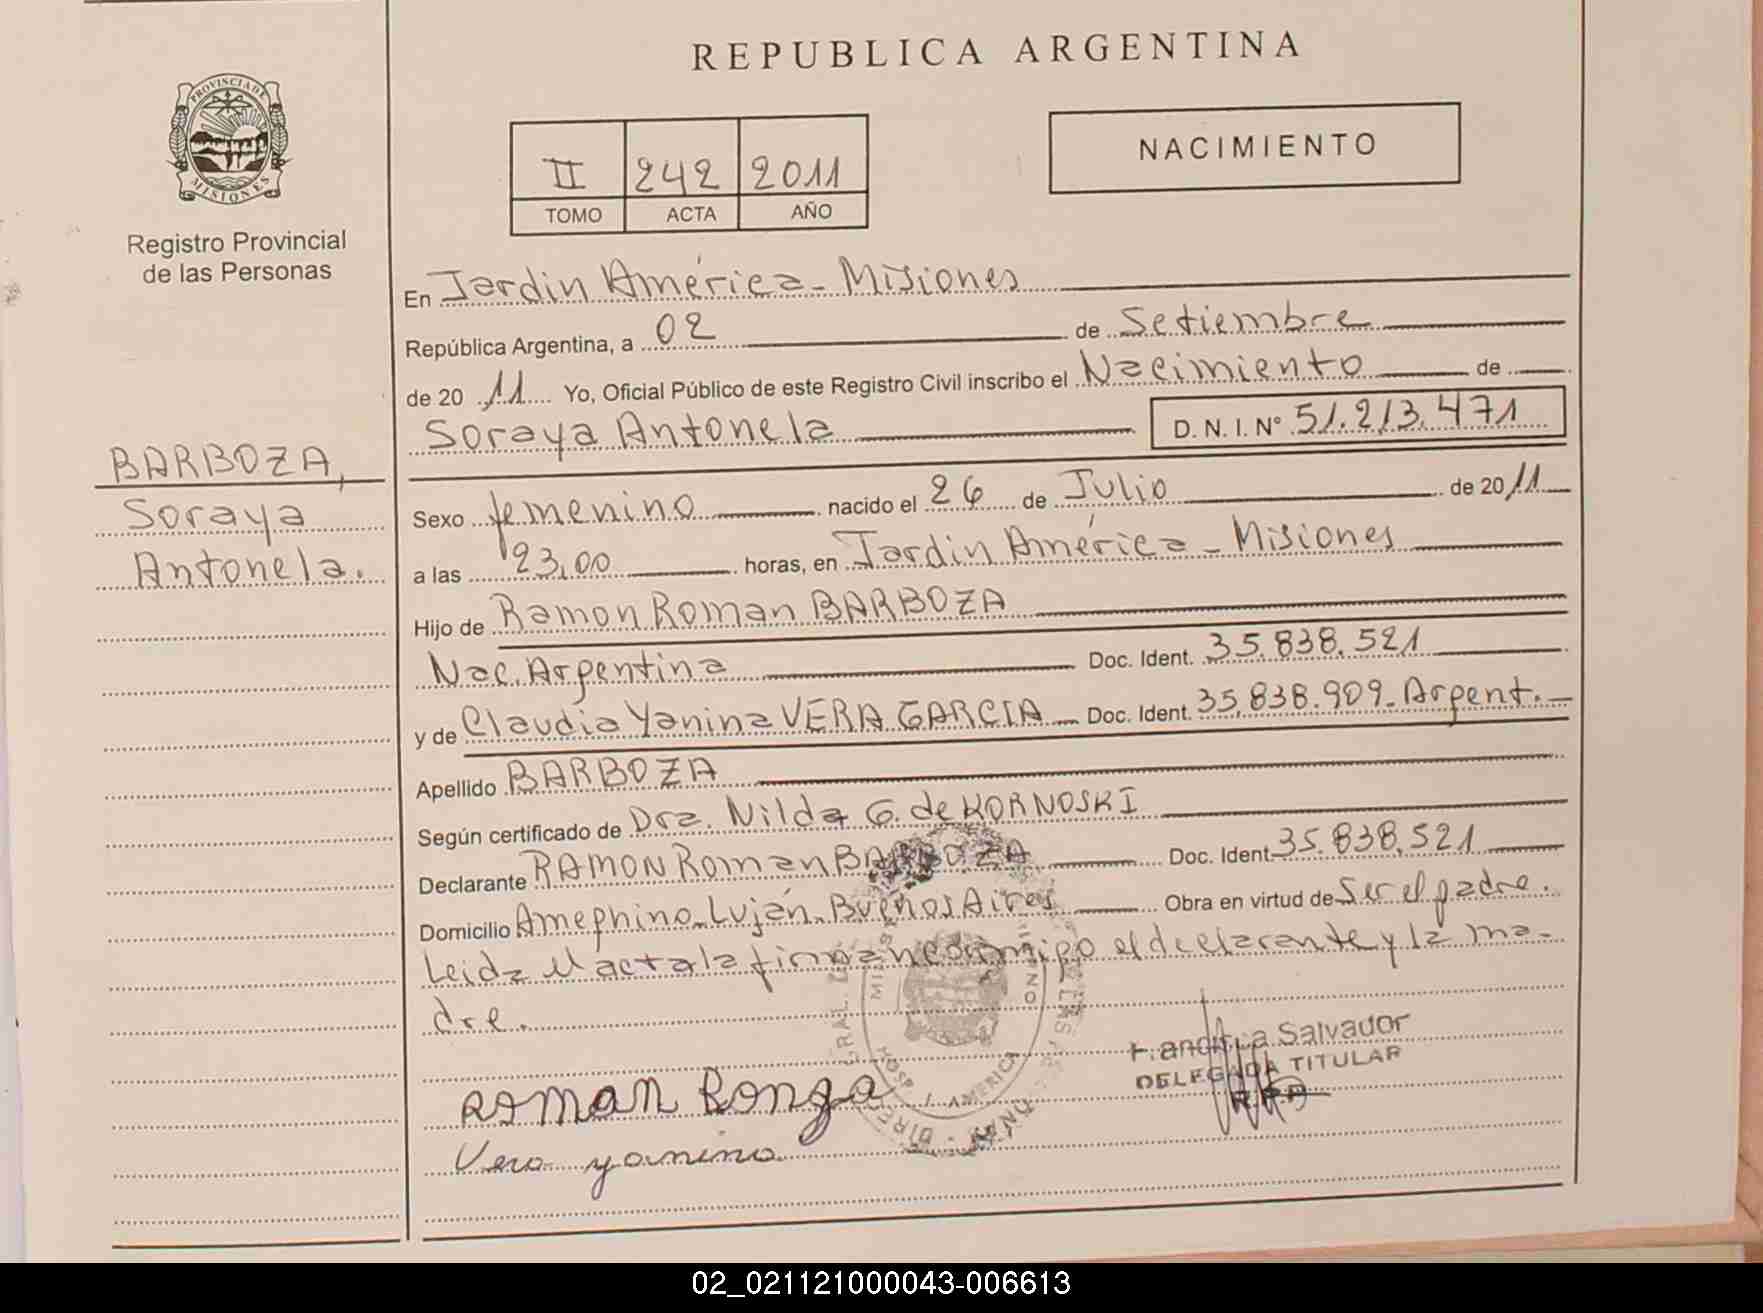 REPUBLICA ARGENTINA
PROVINCIA DE
MISIONES
Registro Provincial
de las Personas
II 242 2011
TOMO ACTA AÑO
NACIMIENTO
BARBOZA,
Soraya
Antonela.
En Jardin América - Misiones
República Argentina, a 02 de Setiembre
de 20 11 Yo, Oficial Público de este Registro Civil inscribo el Nacimiento de
Soraya Antonela D. N. I. Nº 51.213.471
Sexo femenino nacido el 26 de Julio de 20 11
a las 23,00 horas, en Jardin América - Misiones
Hijo de Ramon Roman BARBOZA
Nac. Argentina Doc. Ident. 35.838.521
y de Claudia Yanina VERA GARCIA Doc. Ident. 35.838.909. Argent.
Apellido BARBOZA
Según certificado de Dra. Nilda G. de KORNOSKI
Declarante RAMON Roman BARBOZA Doc. Ident 35.838.521
Domicilio Ameghino - Luján - Buenos Aires Obra en virtud de Ser el padre.
Leida el acta la firman conmigo el declarante y la ma-
dre.
Salvador
DELEGADA TITULAR
ROMAN
Vera yanina
AMERICA
02_021121000043-006613